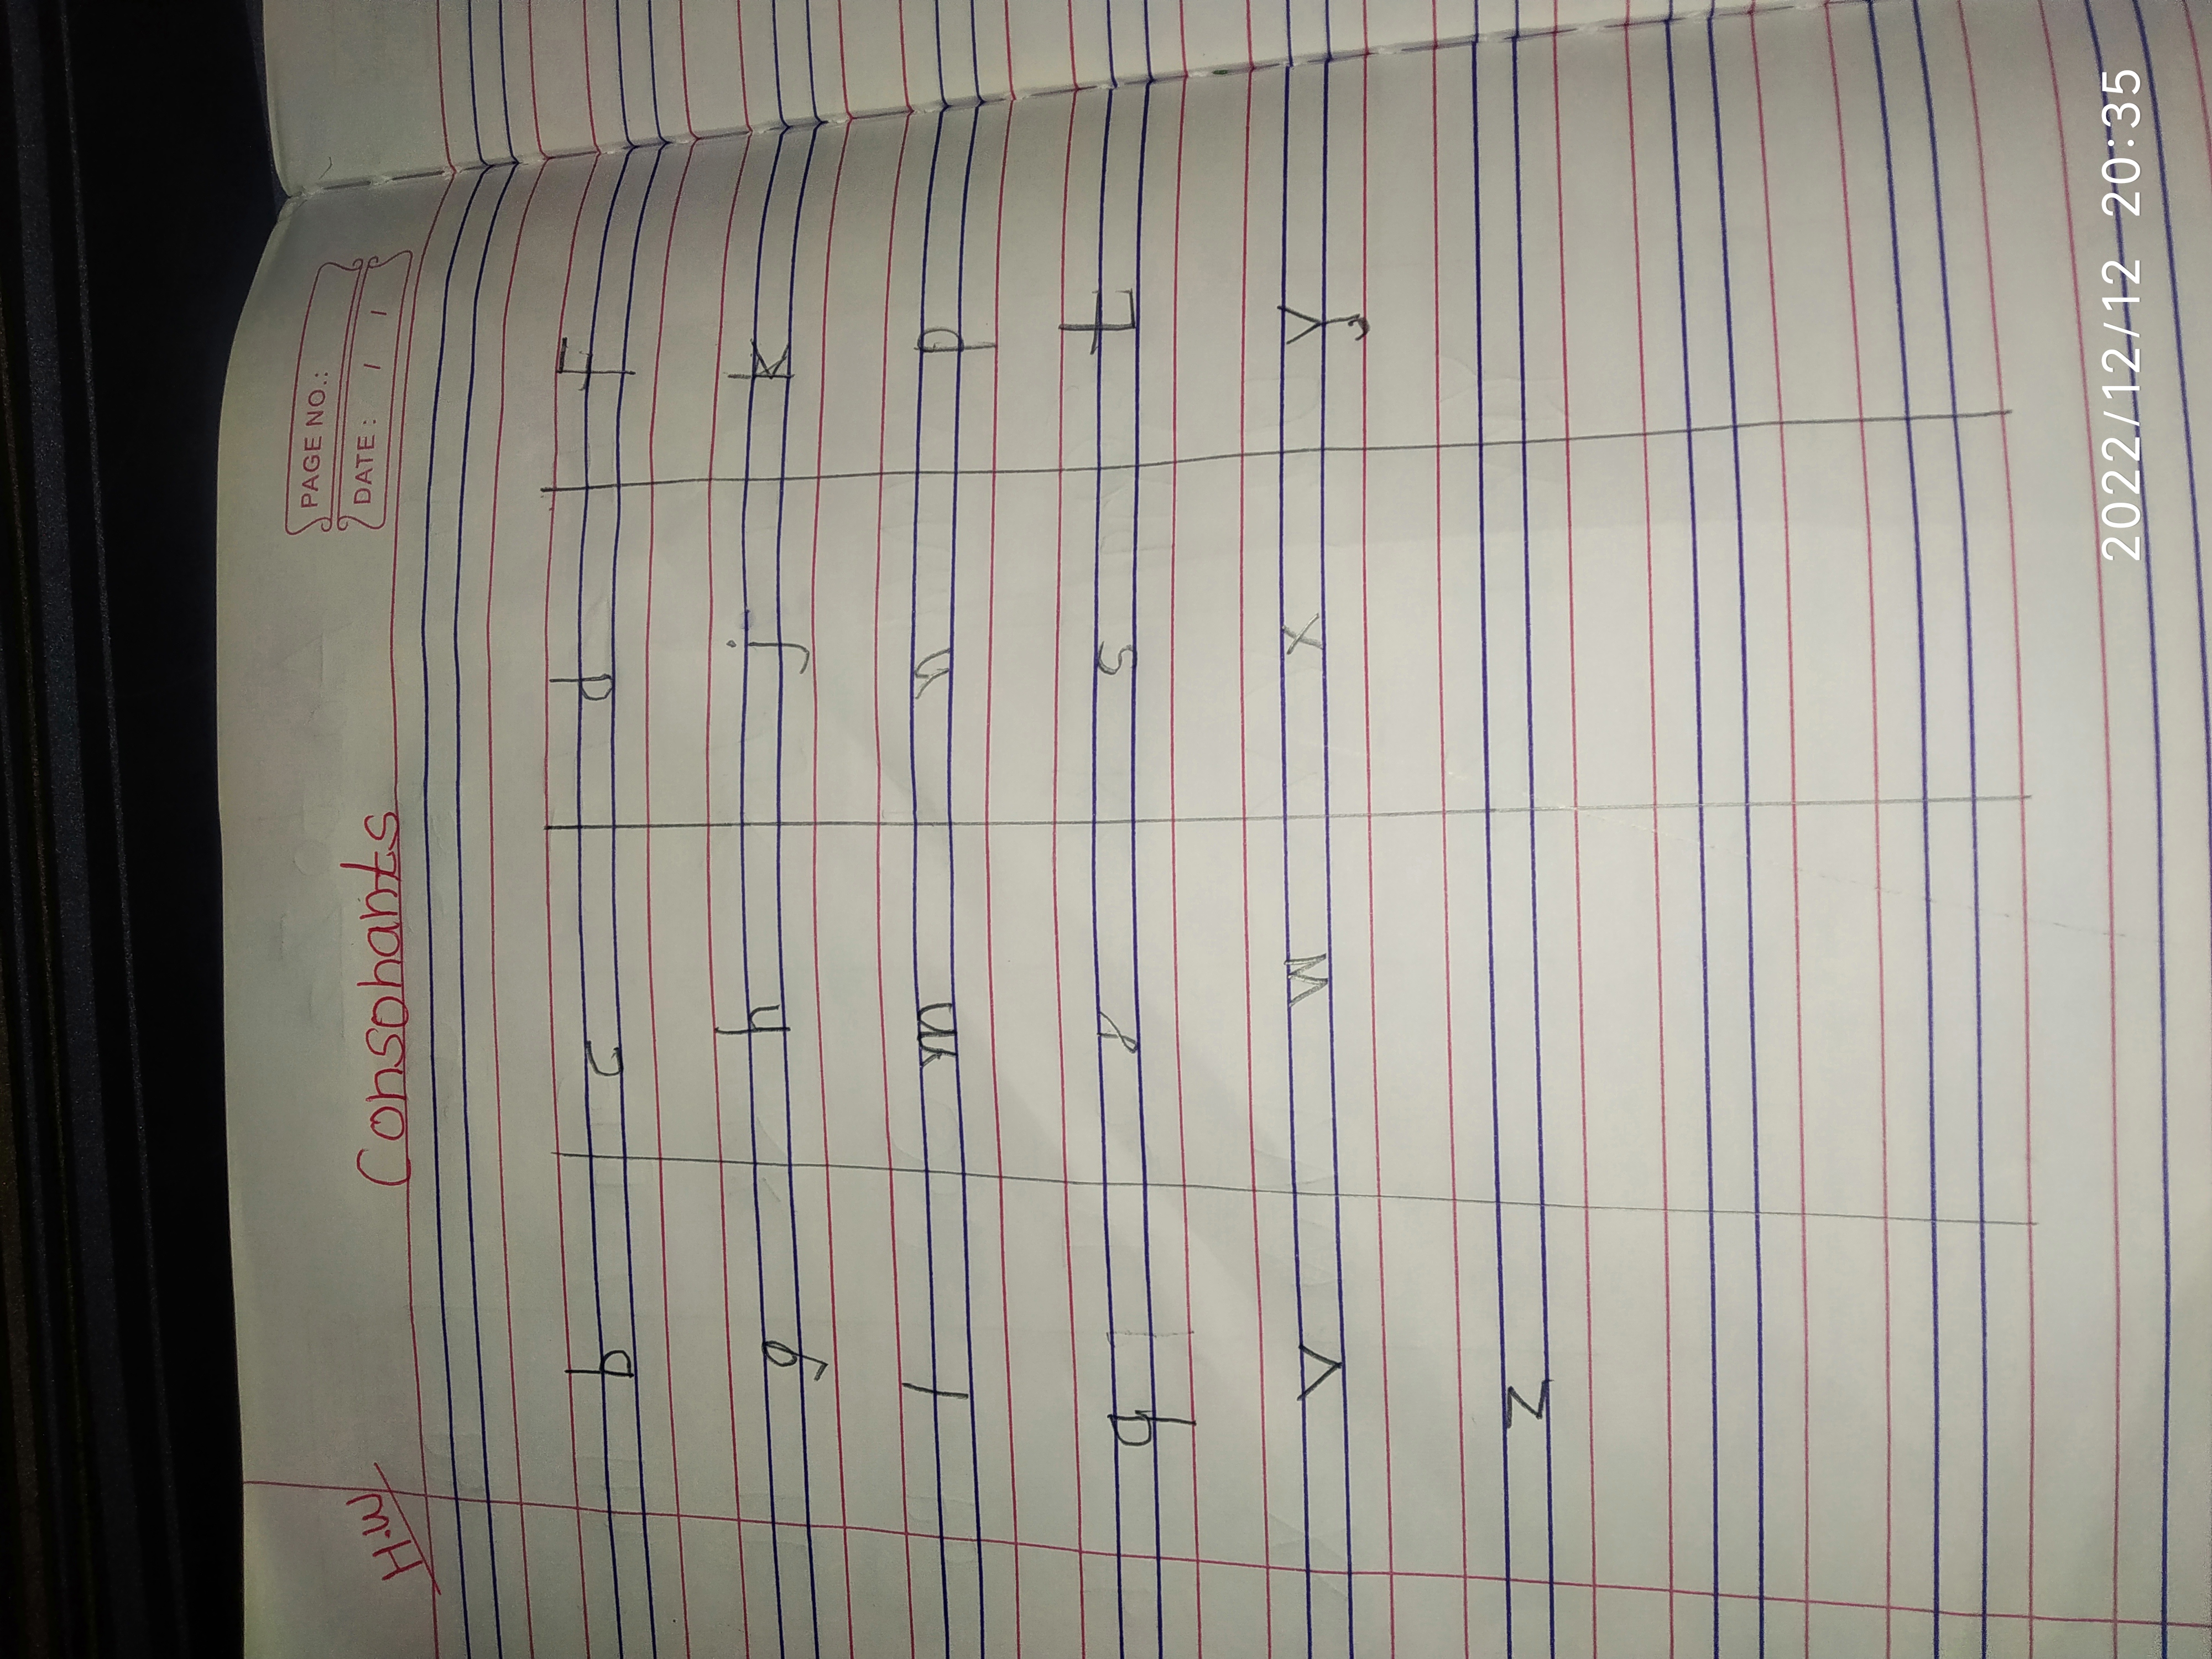 PAGE NO.:
DATE: / /
H.W Consonants
b c d f
g h j k
l m n p
q r s t
v w x y
z
2022/12/12 20:35